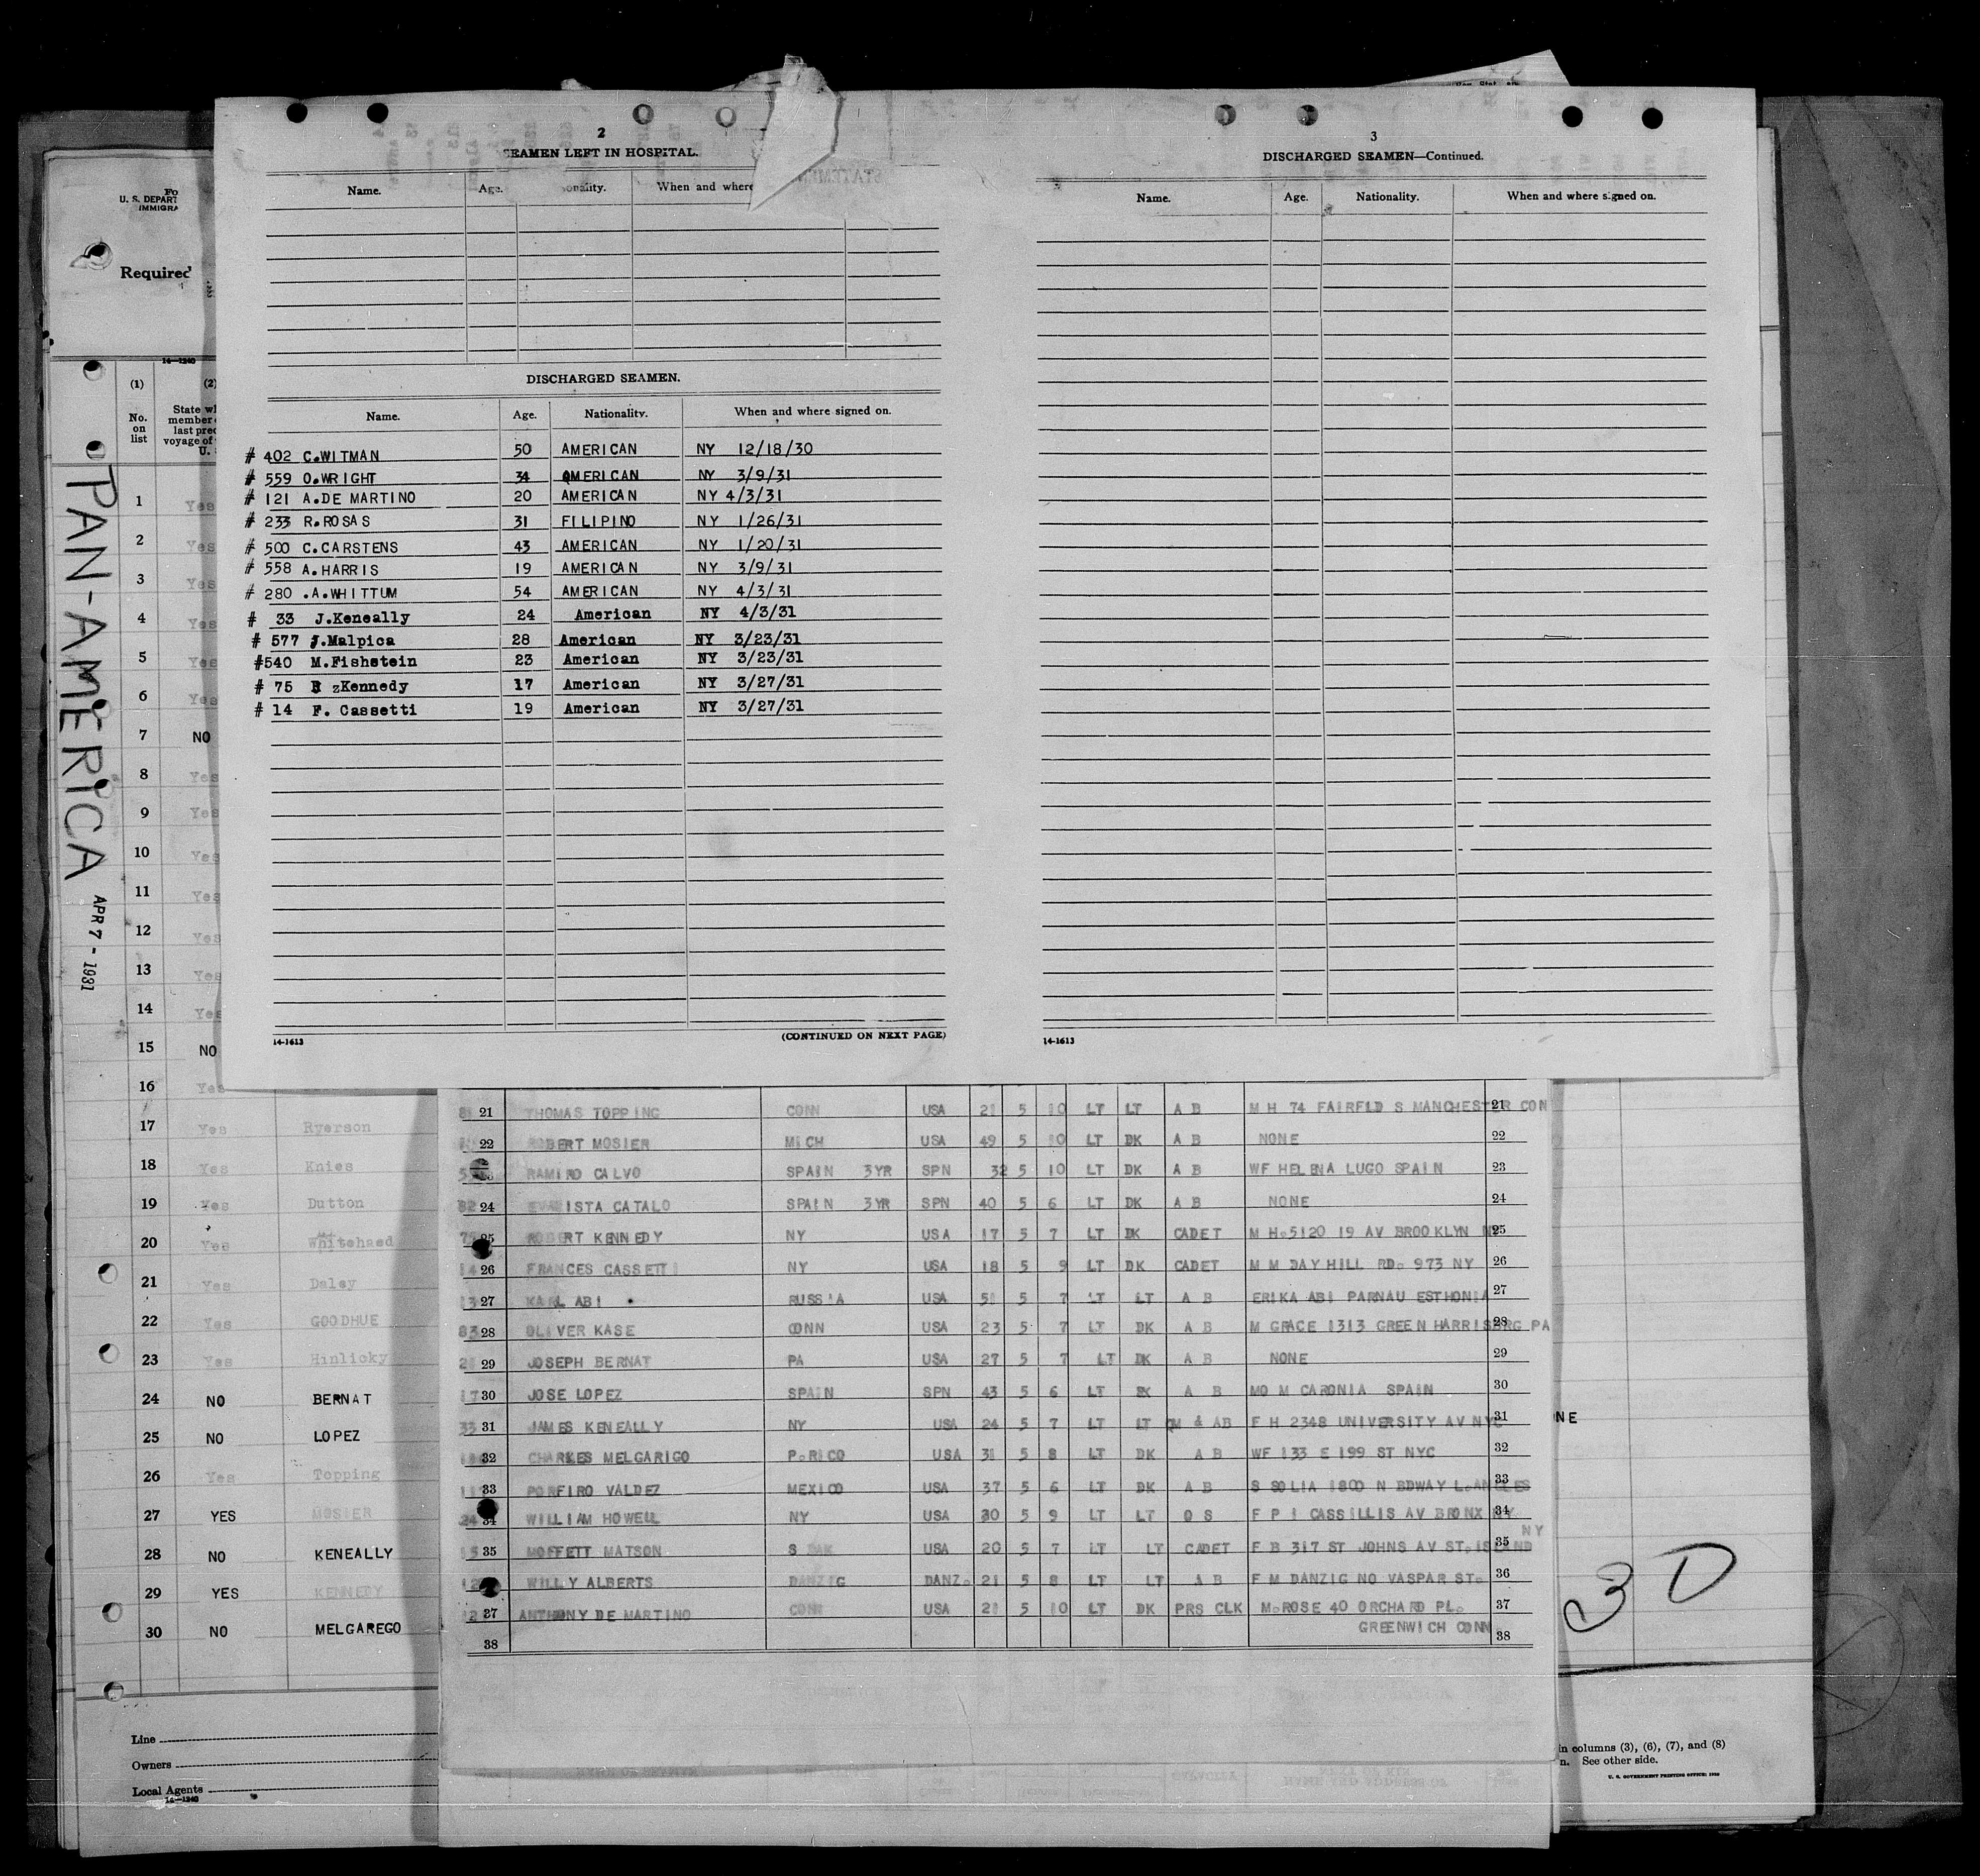 2
SEAMEN LEFT IN HOSPITAL.
Name. Age. onality. When and where
DISCHARGED SEAMEN.
Name. Age. Nationality. When and where signed on.
# 402 C.WITMAN 50 AMERICAN NY 12/18/30
# 559 O.WRIGHT 34 QMERICAN NY 3/9/31
# 121 A.DE MARTINO 20 AMERICAN NY 4/3/31
# 233 R.ROSAS 31 FILIPINO NY 1/26/31
# 500 C.CARSTENS 43 AMERICAN NY 1/20/31
# 558 A.HARRIS 19 AMERICAN NY 3/9/31
# 280 .A.WHITTUM 54 AMERICAN NY 4/3/31
# 33 J.Keneally 24 American NY 4/3/31
# 577 J.Malpica 28 American NY 3/23/31
#540 M.Fishstein 23 American NY 3/23/31
# 75 zKennedy 17 American NY 3/27/31
# 14 F. Cassetti 19 American NY 3/27/31
14-1613 (CONTINUED ON NEXT PAGE)
3
DISCHARGED SEAMEN—Continued.
Name. Age. Nationality. When and where signed on.
14-1613
Fo
U. S. DEPART
IMMIGRA
Required
14-1240
(1) (2)
No. on list
State wh
member
last prec
voyage of
U.
PAN-AMERICA APR 7 - 1931
1 Yes
2 Yes
3 Yes
4 Yes
5 Yes
6 Yes
7 NO
8 Yes
9 Yes
10 Yes
11 Yes
12 Yes
13 Yes
14 Yes
15 NO
16 Yes
17 Yes Ryerson
18 Yes Knies
19 Yes Dutton
20 Yes Whitehaed
21 Yes Daley
22 Yes GOODHUE
23 Yes Hinlicky
24 NO BERNAT
25 NO LOPEZ
26 Yes Topping
27 YES MOSIER
28 NO KENEALLY
29 YES KENNEDY
30 NO MELGAREGO
Line
Owners
Local Agents
14-1240
21 THOMAS TOPPING CONN USA 21 5 10 LT LT A B M H 74 FAIRFLD S MANCHESTER CON 21
22 ROBERT MOSIER MICH USA 49 5 10 LT DK A B NONE 22
RAMIRO CALVO SPAIN 3YR SPN 32 5 10 LT DK A B WF HELENA LUGO SPAIN 23
24 ISTA CATALO SPAIN 3YR SPN 40 5 6 LT DK A B NONE 24
25 ROBERT KENNEDY NY USA 17 5 7 LT DK CADET M H.5120 19 AV BROOKLYN 25
26 FRANCES CASSETTI NY USA 18 5 9 LT DK CADET M M DAY HILL RD. 973 NY 26
27 KARL ABI RUSSIA USA 51 5 7 LT LT A B ERIKA ABI PARNAU ESTHONIA 27
28 OLIVER KASE CONN USA 23 5 7 LT DK A B M GRACE 1313 GREEN HARRISBRG PA 28
29 JOSEPH BERNAT PA USA 27 5 7 LT DK A B NONE 29
30 JOSE LOPEZ SPAIN SPN 43 5 6 LT A B MO M CARONIA SPAIN 30
31 JAMES KENEALLY NY USA 24 5 7 LT LT QM & AB F H 2348 UNIVERSITY AV NYC 31
32 CHARKES MELGARIGO P.RICO USA 31 5 8 LT DK A B WF 133 E 199 ST NYC 32
33 PORFIRO VALDEZ MEXICO USA 37 5 6 LT DK A B S SOLIA 1800 N BDWAY L.ANGLES 33
34 WILLIAM HOWELL NY USA 30 5 9 LT LT O S F P 1 CASSILLIS AV BRONX NY 34
35 MOFFETT MATSON S DAK USA 20 5 7 LT LT CADET F B 317 ST JOHNS AV ST.ISLAND NY 35
WILLY ALBERTS DANZIG DANZ. 21 5 8 LT LT A B F M DANZIG NO VASPAR ST. 36
37 ANTHONY DE MARTINO CONN USA 21 5 10 LT DK PRS CLK M.ROSE 40 ORCHARD PL. 37
38 GREENWICH CONN 38
NE
3 D
in columns (3), (6), (7), and (8)
n. See other side.
U. S. GOVERNMENT PRINTING OFFICE: